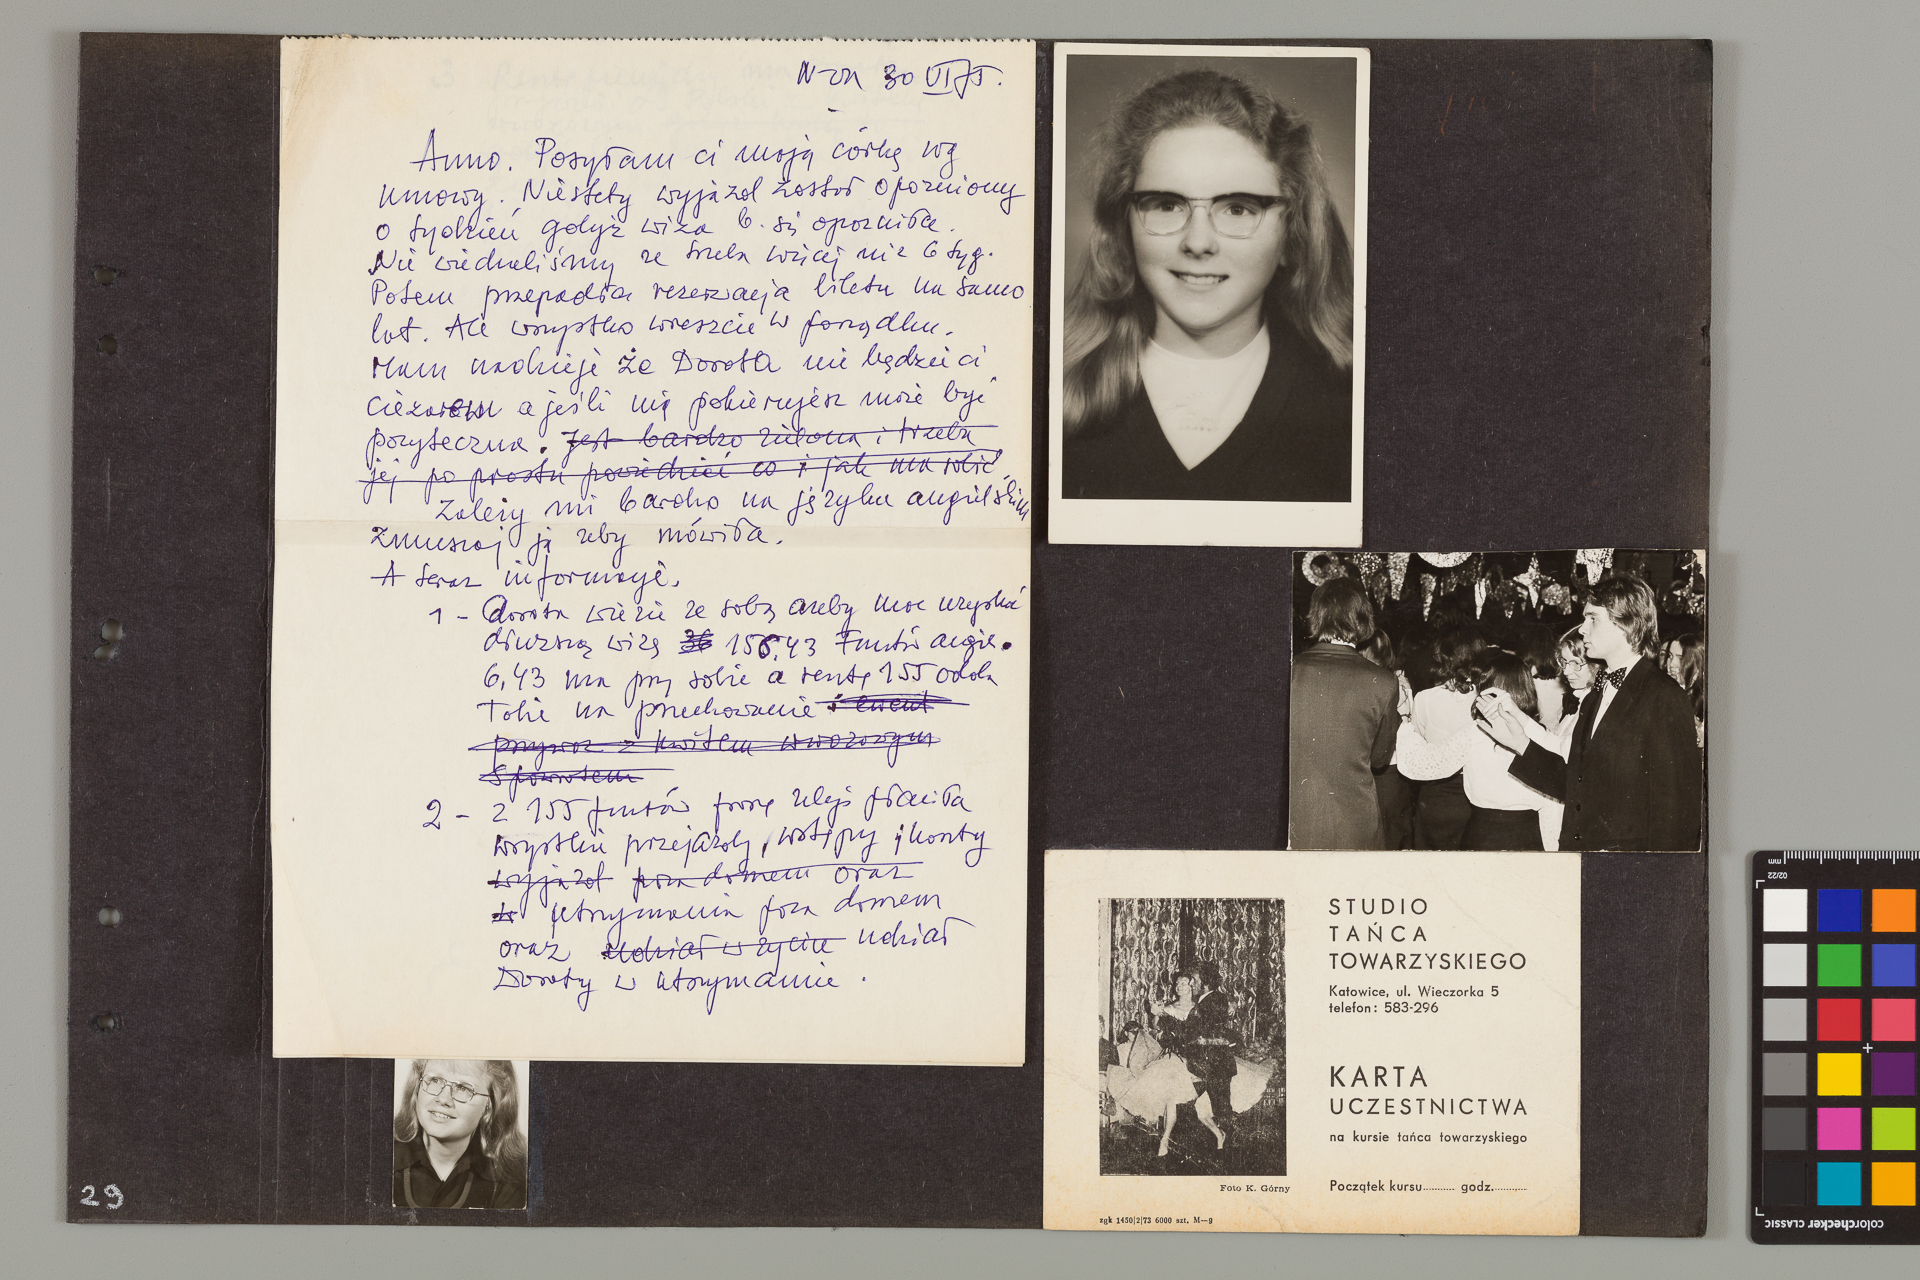 N-va 30 VI 75.
Anno. Posyłam ci moją córkę wg
umowy. Niestety wyjazd został opozniony
o tydzień gdyż wiza b. się opozniła.
Nie wiedzieliśmy ze trzeba więcej niz 6 tyg.
Potem przepadła rezerwacja biletu na samo
lot. Ale wszystko wreszcie w porządku.
Mam nadzieję że Dorota nie będzie ci
ciężarem a jeśli nią pokierujesz może być
pozyteczna. Jest bardzo zielona i trzeba
jej po prostu powiedzieć co i jak ma robić
Zależy mi bardzo na języku angielskim
Zmuszaj ją zeby mówiła.
A teraz informacje.
1 - Dorota wiezie ze sobą azeby moc uzyskać
dłuzszą wizę 36 156,43 Funtów angie.
6,43 ma przy sobie a resztę 155 odda
Tobie na przechowanie i ewent
przywoz z kwitem wwozowym
spowrotem
2 - z 155 funtów proszę zebyś płaciła
wszystkie przejazdy, wstępy i koszty
wyjazd poza domem oraz
utrzymania poza domem
oraz udział w zyciu udział
Doroty w utrzymanie.
29
STUDIO
TAŃCA
TOWARZYSKIEGO
Katowice, ul. Wieczorka 5
telefon: 583-296
KARTA
UCZESTNICTWA
na kursie tańca towarzyskiego
Początek kursu........... godz...........
Foto K. Górny
zgk 1450|2|73 6000 szt. M—9
mm
02/22
colorchecker CLASSIC